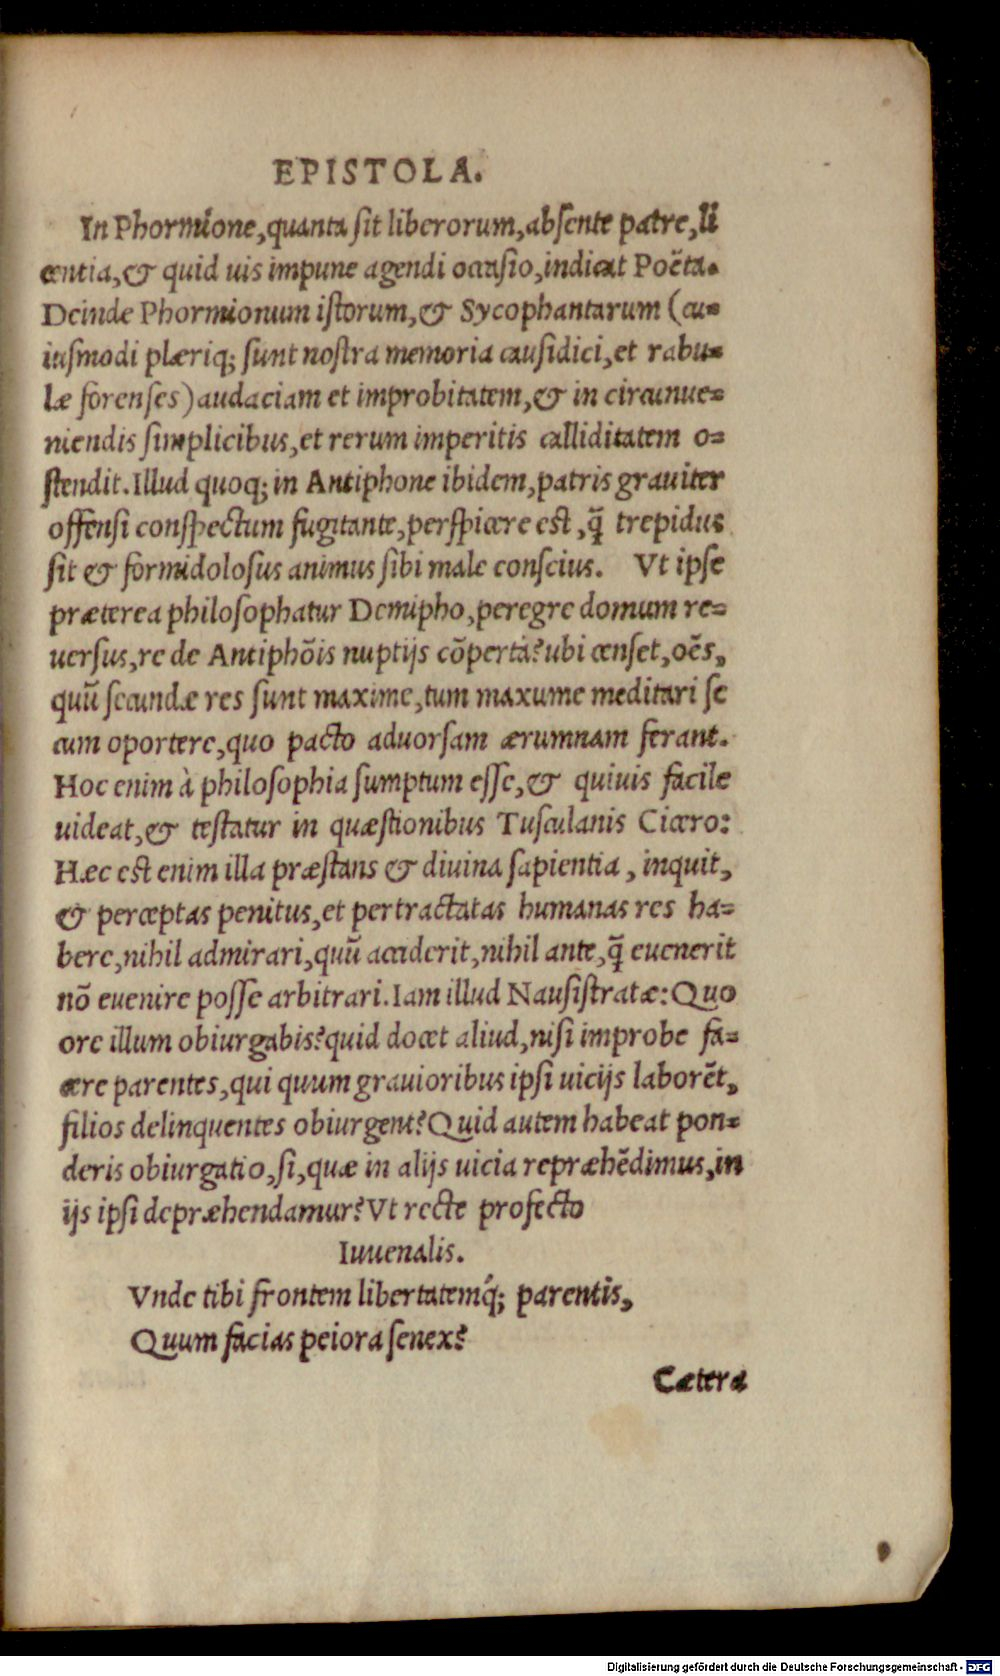 EPISTOLA.
In Phormione, quanta sit liberorum, absente patre, li
centia, & quid uis impune agendi occasio, indicat Poëta.
Deinde Phormionum istorum, & Sycophantarum (cu=
iusmodi pleriq; sunt nostra memoria causidici, et rabu=
læ forenses) audaciam et improbitatem, & in circunue=
niendis simplicibus, et rerum imperitis calliditatem o=
stendit. Illud quoq; in Antiphone ibidem, patris grauiter
offensi conspectum fugitante, perspicere est, q̃ trepidus
sit & formidolosus animus sibi male conscius. Vt ipse
præterea philosophatur Demipho, peregre domum re=
uersus, re de Antiphõis nuptijs cõperta? ubi censet, oẽs,
quũ secundæ res sunt maxime, tum maxume meditari se
cum oportere, quo pacto aduorsam ærumnam ferant.
Hoc enim à philosophia sumptum esse, & quiuis facile
uideat, & testatur in quæstionibus Tusculanis Cicero:
Hæc est enim illa præstans & diuina sapientia, inquit,
& perceptas penitus, et pertractatas humanas res ha=
bere, nihil admirari, quũ acciderit, nihil ante, q̃ euenerit
nõ euenire posse arbitrari. Iam illud Nausistratæ: Quo
ore illum obiurgabis? quid docet aliud, nisi improbe fa=
cere parentes, qui quum grauioribus ipsi uicijs laborẽt,
filios delinquentes obiurgent? Quid autem habeat pon=
deris obiurgatio, si, quæ in alijs uicia repræhẽdimus, in
ijs ipsi depræhendamur? Vt recte profecto
Iuuenalis.
Vnde tibi frontem libertatemq́; parentis,
Quum facias peiora senex?
Cætera
Digitalisierung gefördert durch die Deutsche Forschungsgemeinschaft - DFG